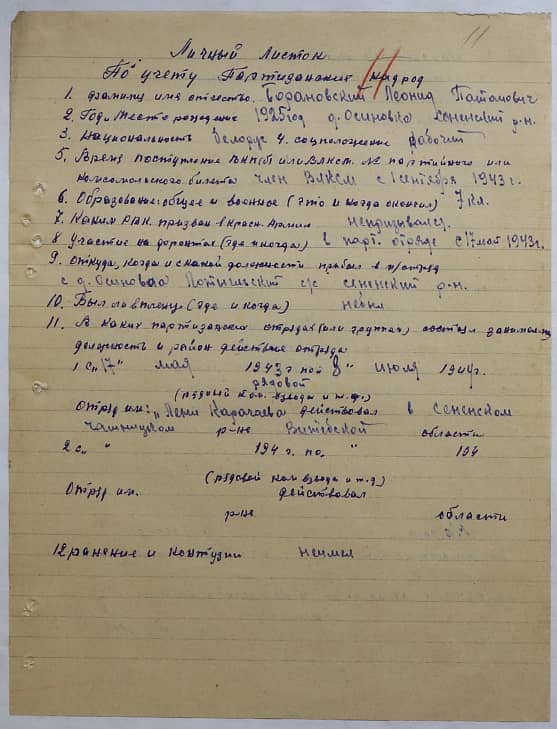 11
Личный Листок
По учету Партизанских кадров
1. фамилия имя отчество. Барановский Леонид Потапович
2. Год и место рождения 1925 год д. Осиновка Сененский р-н.
3. Национальность белорус 4. соцположение рабочий
5. Время поступление ВКП(б) или ВЛКСМ. № партийного или
комсомольского билета член ВЛКСМ с 1 сентября 1943 г.
6. Образование: общее и военное (что и когда окончил) 7 кл.
7. Каким РВК. призван в Красн. Армию непризывался.
8 Участие на фронтах (где и когда) в парт. отряде с 17 мая 1943 г.
9. откуда, когда и с какой должности прибыл в п/отряд
с д. Осиновка с/с сененский р-н.
10. Был ли в плену (где и когда) небыл
11. В каких партизанских отрядах (или группах) состоял занимаемая
должность и район действие отряда
1 с „17" мая 1943 г по „8" июля 1944 г.
рядовой
(рядовой ком. взвода и т.д.)
Отряд им: „ действовал в сененском
чашницком р-не Витебской области
2 с „ " 194 г. по „ " 194
(рядовой ком взвода и т.д)
Отряд им. действовал
р-не области
12 ранение и контузии неимел